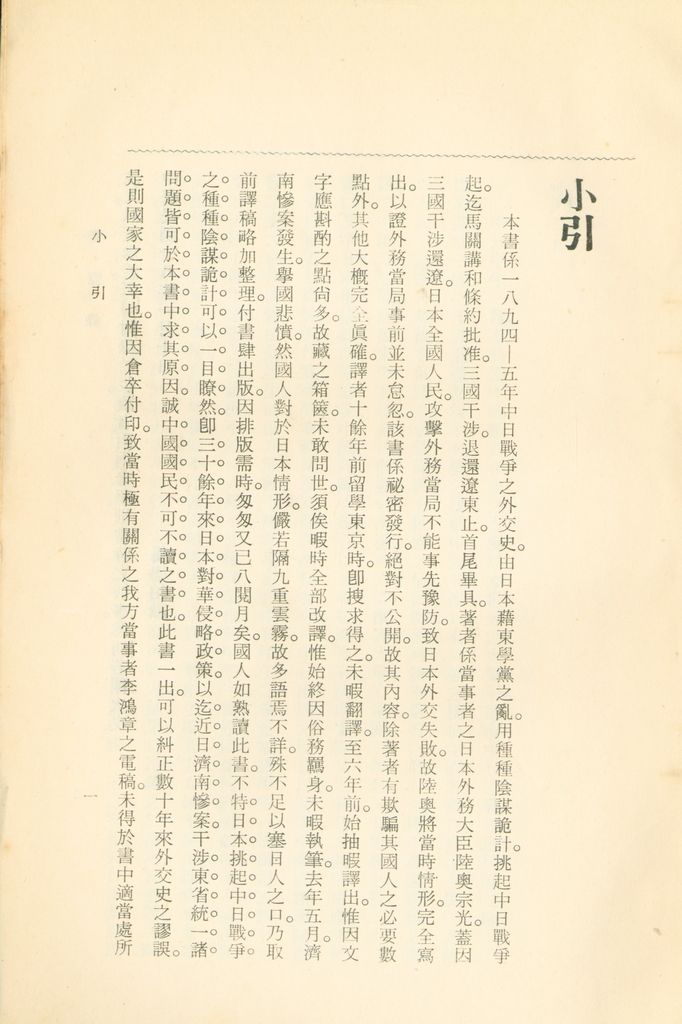 小引
本書係一八九四—五年中日戰爭之外交史。由日本藉東學黨之亂。用種種陰謀詭計。挑起中日戰爭
起。迄馬關講和條約批准。三國干涉。退還遼東止。首尾畢具。著者係當事者之日本外務大臣陸奧宗光。蓋因
三國干涉還遼。日本全國人民。攻擊外務當局不能事先豫防。致日本外交失敗。故陸奧將當時情形。完全寫
出。以證外務當局事前並未怠忽。該書係祕密發行。絕對不公開。故其內容。除著者有欺騙其國人之必要數
點外。其他大概完全眞確。譯者十餘年前留學東京時。卽搜求得之。未暇翻譯。至六年前。始抽暇譯出。惟因文
字應斟酌之點尙多。故藏之箱篋。未敢問世。須俟暇時全部改譯。惟始終因俗務羈身。未暇執筆。去年五月。濟
南慘案發生。擧國悲憤。然國人對於日本情形。儼若隔九重雲霧。故多語焉不詳。殊不足以塞日人之口。乃取
前譯稿略加整理。付書肆出版。因排版需時。匆匆又已八閱月矣。國人如熟讀此書。不特日本挑起中日戰爭
之種種陰謀詭計可以一目瞭然。卽三十餘年來日本對華侵略政策。以迄近日濟南慘案干涉東省統一諸
問題。皆可於本書中求其原因。誠中國國民不可不讀之書也。此書一出。可以糾正數十年來外交史之謬誤。
是則國家之大幸也。惟因倉卒付印。致當時極有關係之我方當事者李鴻章之電稿。未得於書中適當處所
小引
一